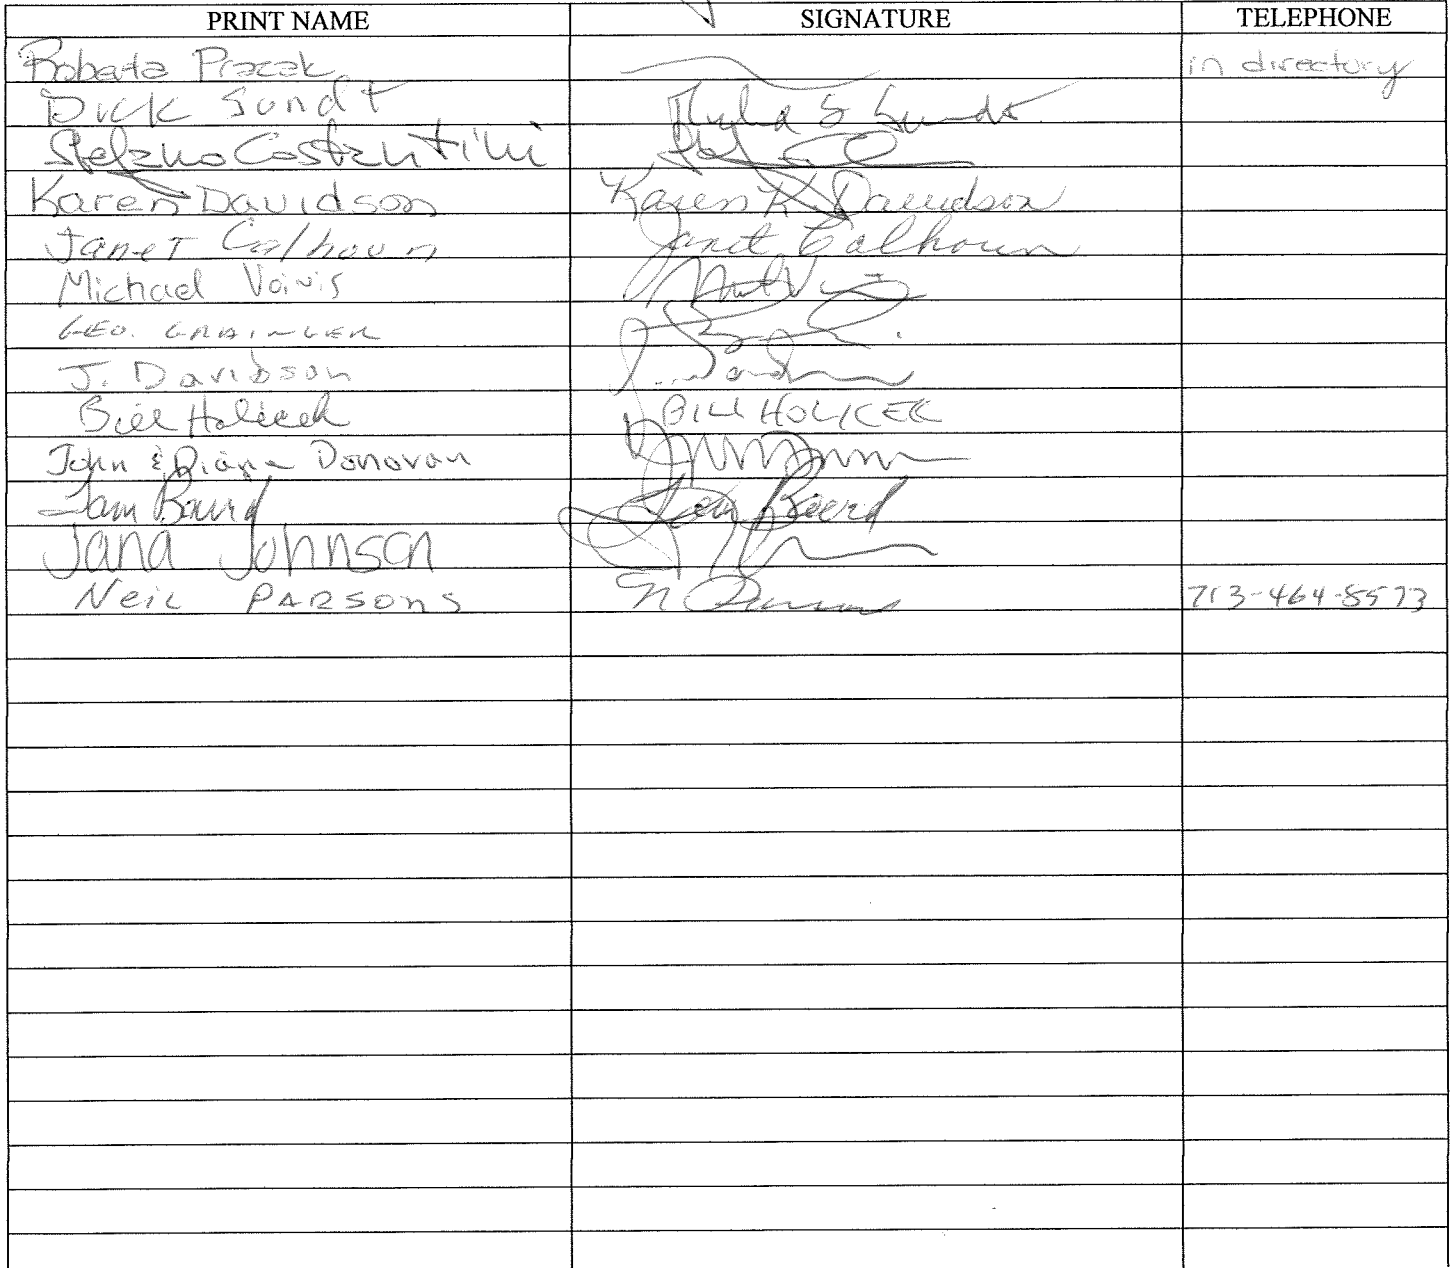 PRINT NAME SIGNATURE TELEPHONE
Roberta Prazak in directory
Dick Sundt
Stefano Costantini
Karen Davidson Karen K. Davidson
Janet Calhoun Janet Calhoun
Michael Voivis
GEO. GRAINGER
J. Davidson
Bill Holicek BILL HOLICEK
John & Diana Donovan
Baird Baird
Jana Johnson
Neil PARSONS N Parsons 713-464-8573